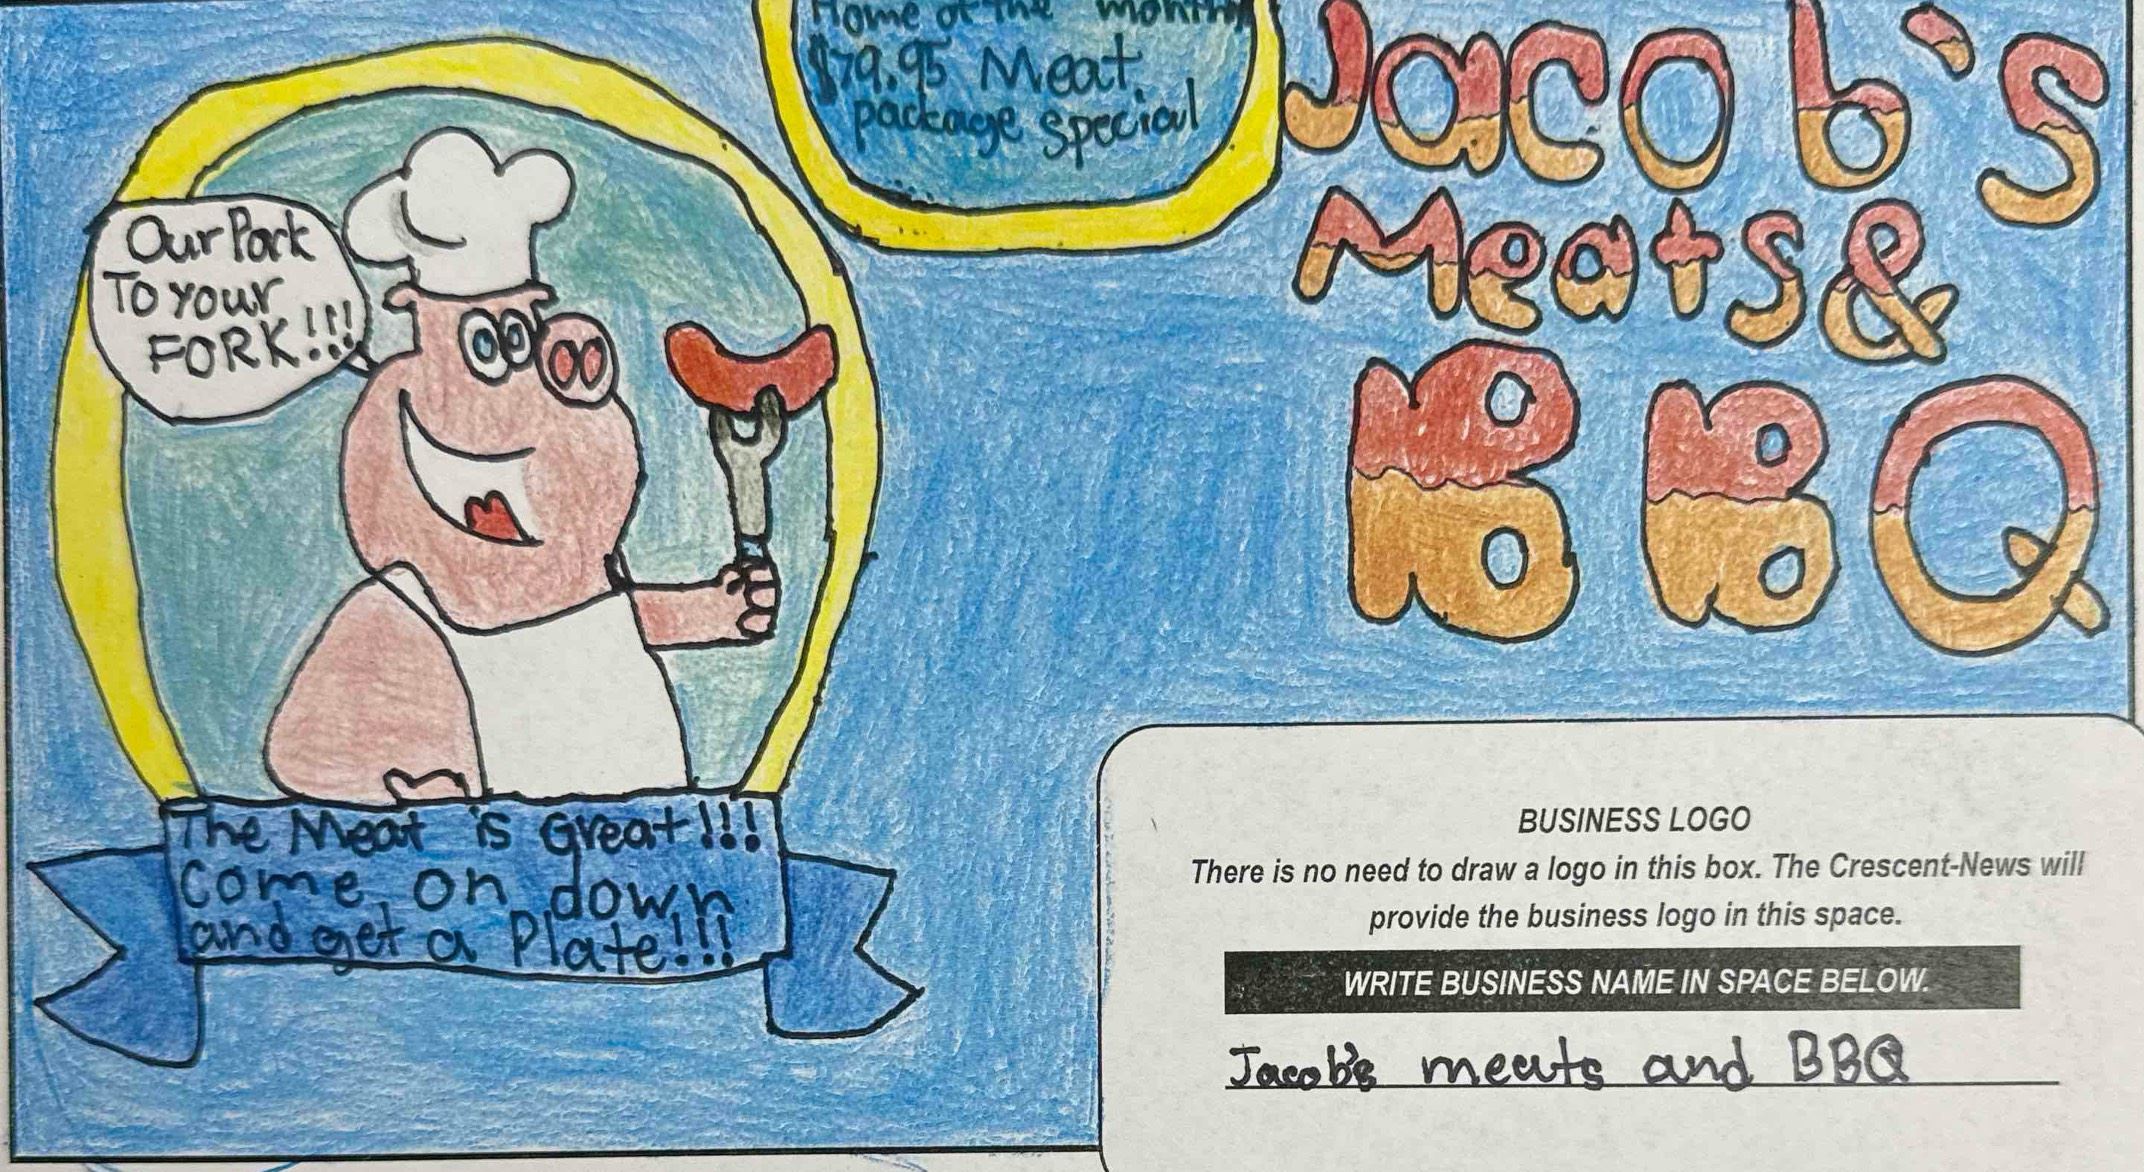 Home of the monthly
$79.95 Meat
package special
Jacob's
Meats &
BBQ
Our Pork
To Your
FORK!!!
The Meat is Great!!!
Come on down
and get a Plate!!!
BUSINESS LOGO
There is no need to draw a logo in this box. The Crescent-News will
provide the business logo in this space.
WRITE BUSINESS NAME IN SPACE BELOW.
Jacob's meats and BBQ